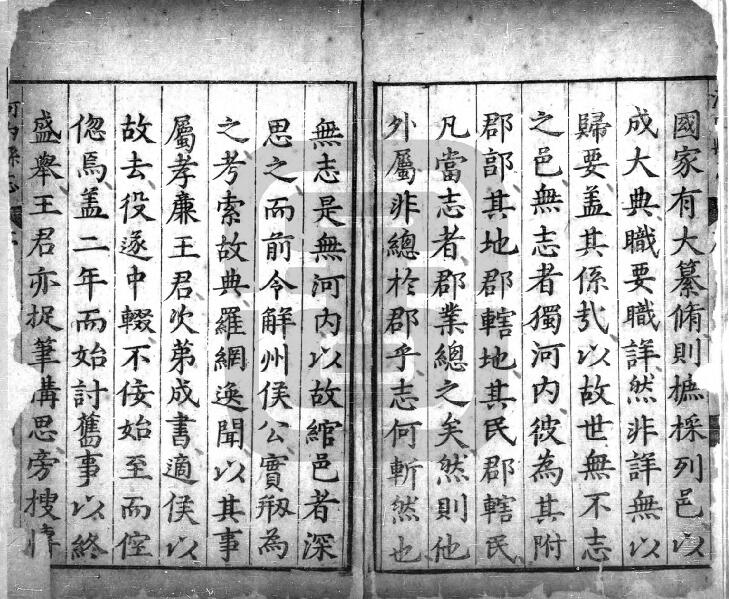 國家有大纂脩則摭採列邑以
成大典職要職詳然非詳無以
歸要盖其係㢤以故世無不志
之邑無志者獨河内彼為其附
郡郭其地郡轄地其民郡轄民
凡當志者郡業總之矣然則他
外屬非總於郡乎志何斬然也
無志是無河内以故綰邑者深
思之而前令解州侯公實刱為
之考索故典羅網逸聞以其事
屬孝廉王君次第成書適侯以
故去役遂中輟不佞始至而倥
偬焉盖二年而始討舊事以終
盛舉王君亦捉筆搆思旁搜
河内縣志